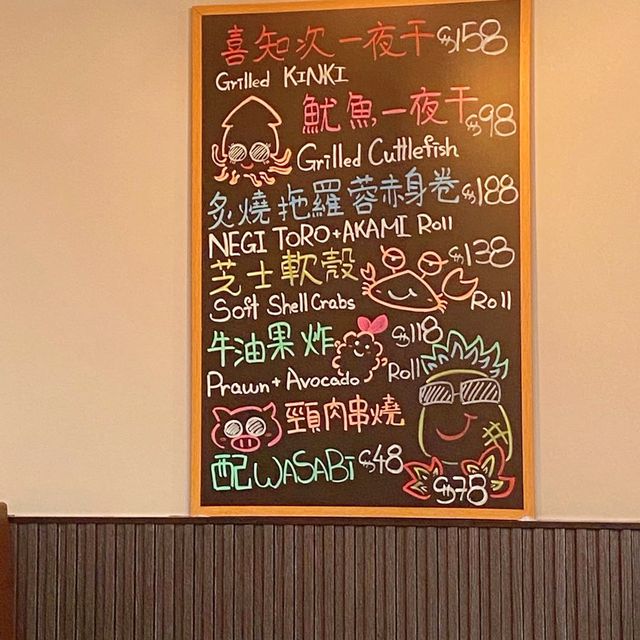 喜知次一夜干 $158
Grilled KINKI
魷魚一夜干 $98
Grilled Cuttlefish
炙燒拖羅蓉赤身卷 $188
NEGI TORO+AKAMI Roll
芝士軟殼 $138
Soft Shell Crabs Roll
牛油果炸 $118
Prawn + Avocado Roll
頸肉串燒
配WASABi $48
$78